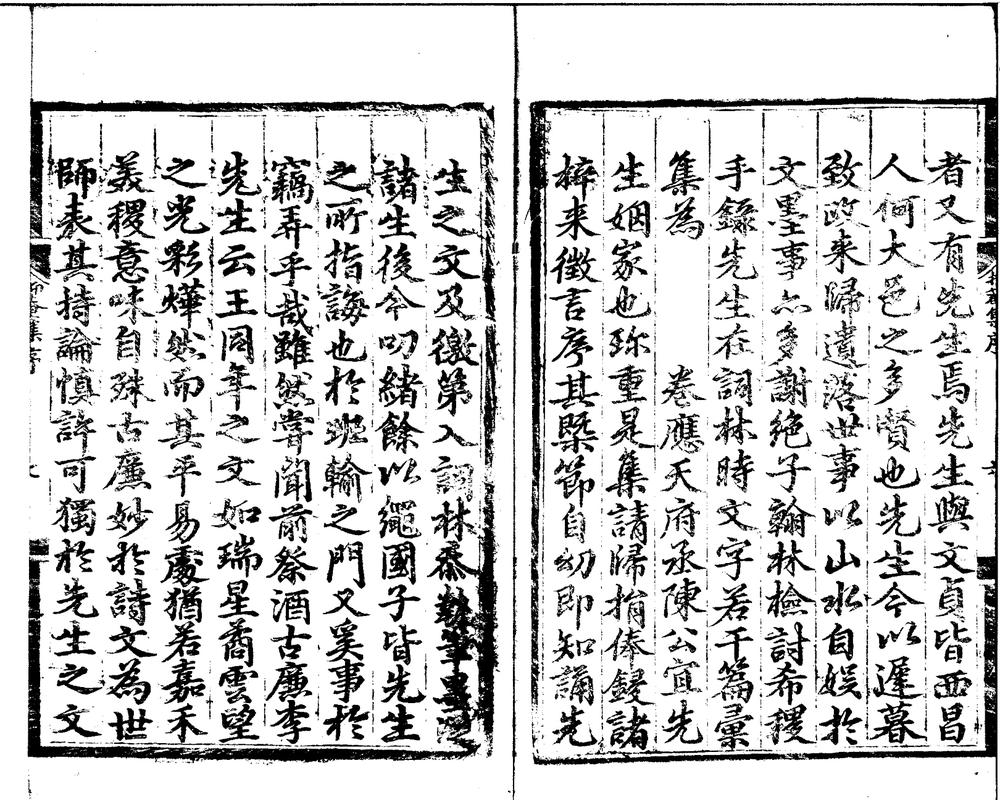 者又有先生焉先生與文貞皆西昌
人何大邑之多賢也先生今以遲暮
致政来歸遺落世事以山水自娱於
文墨事亦多謝絶子翰林檢討希稷
手錄先生在詞林時文字若干篇彙
集為 卷應天府丞陳公宜先
生姻家也珎重是集請歸捐俸鋟諸
梓来徴言序其槩節自幼即知誦先
生之文及徼第入詞林忝執筆
諸生後今叨緒餘以繩國子皆先生
之所指誨也於班輸之門又奚事於
竊弄乎哉雖然嘗聞前祭酒古廉李
先生云王同年之文如瑞星矞雲望
之光彩燁然而其平易處猶若嘉禾
美稷意味自殊古廉妙於詩文為世
師表其持論慎許可獨於先生之文
菴集序